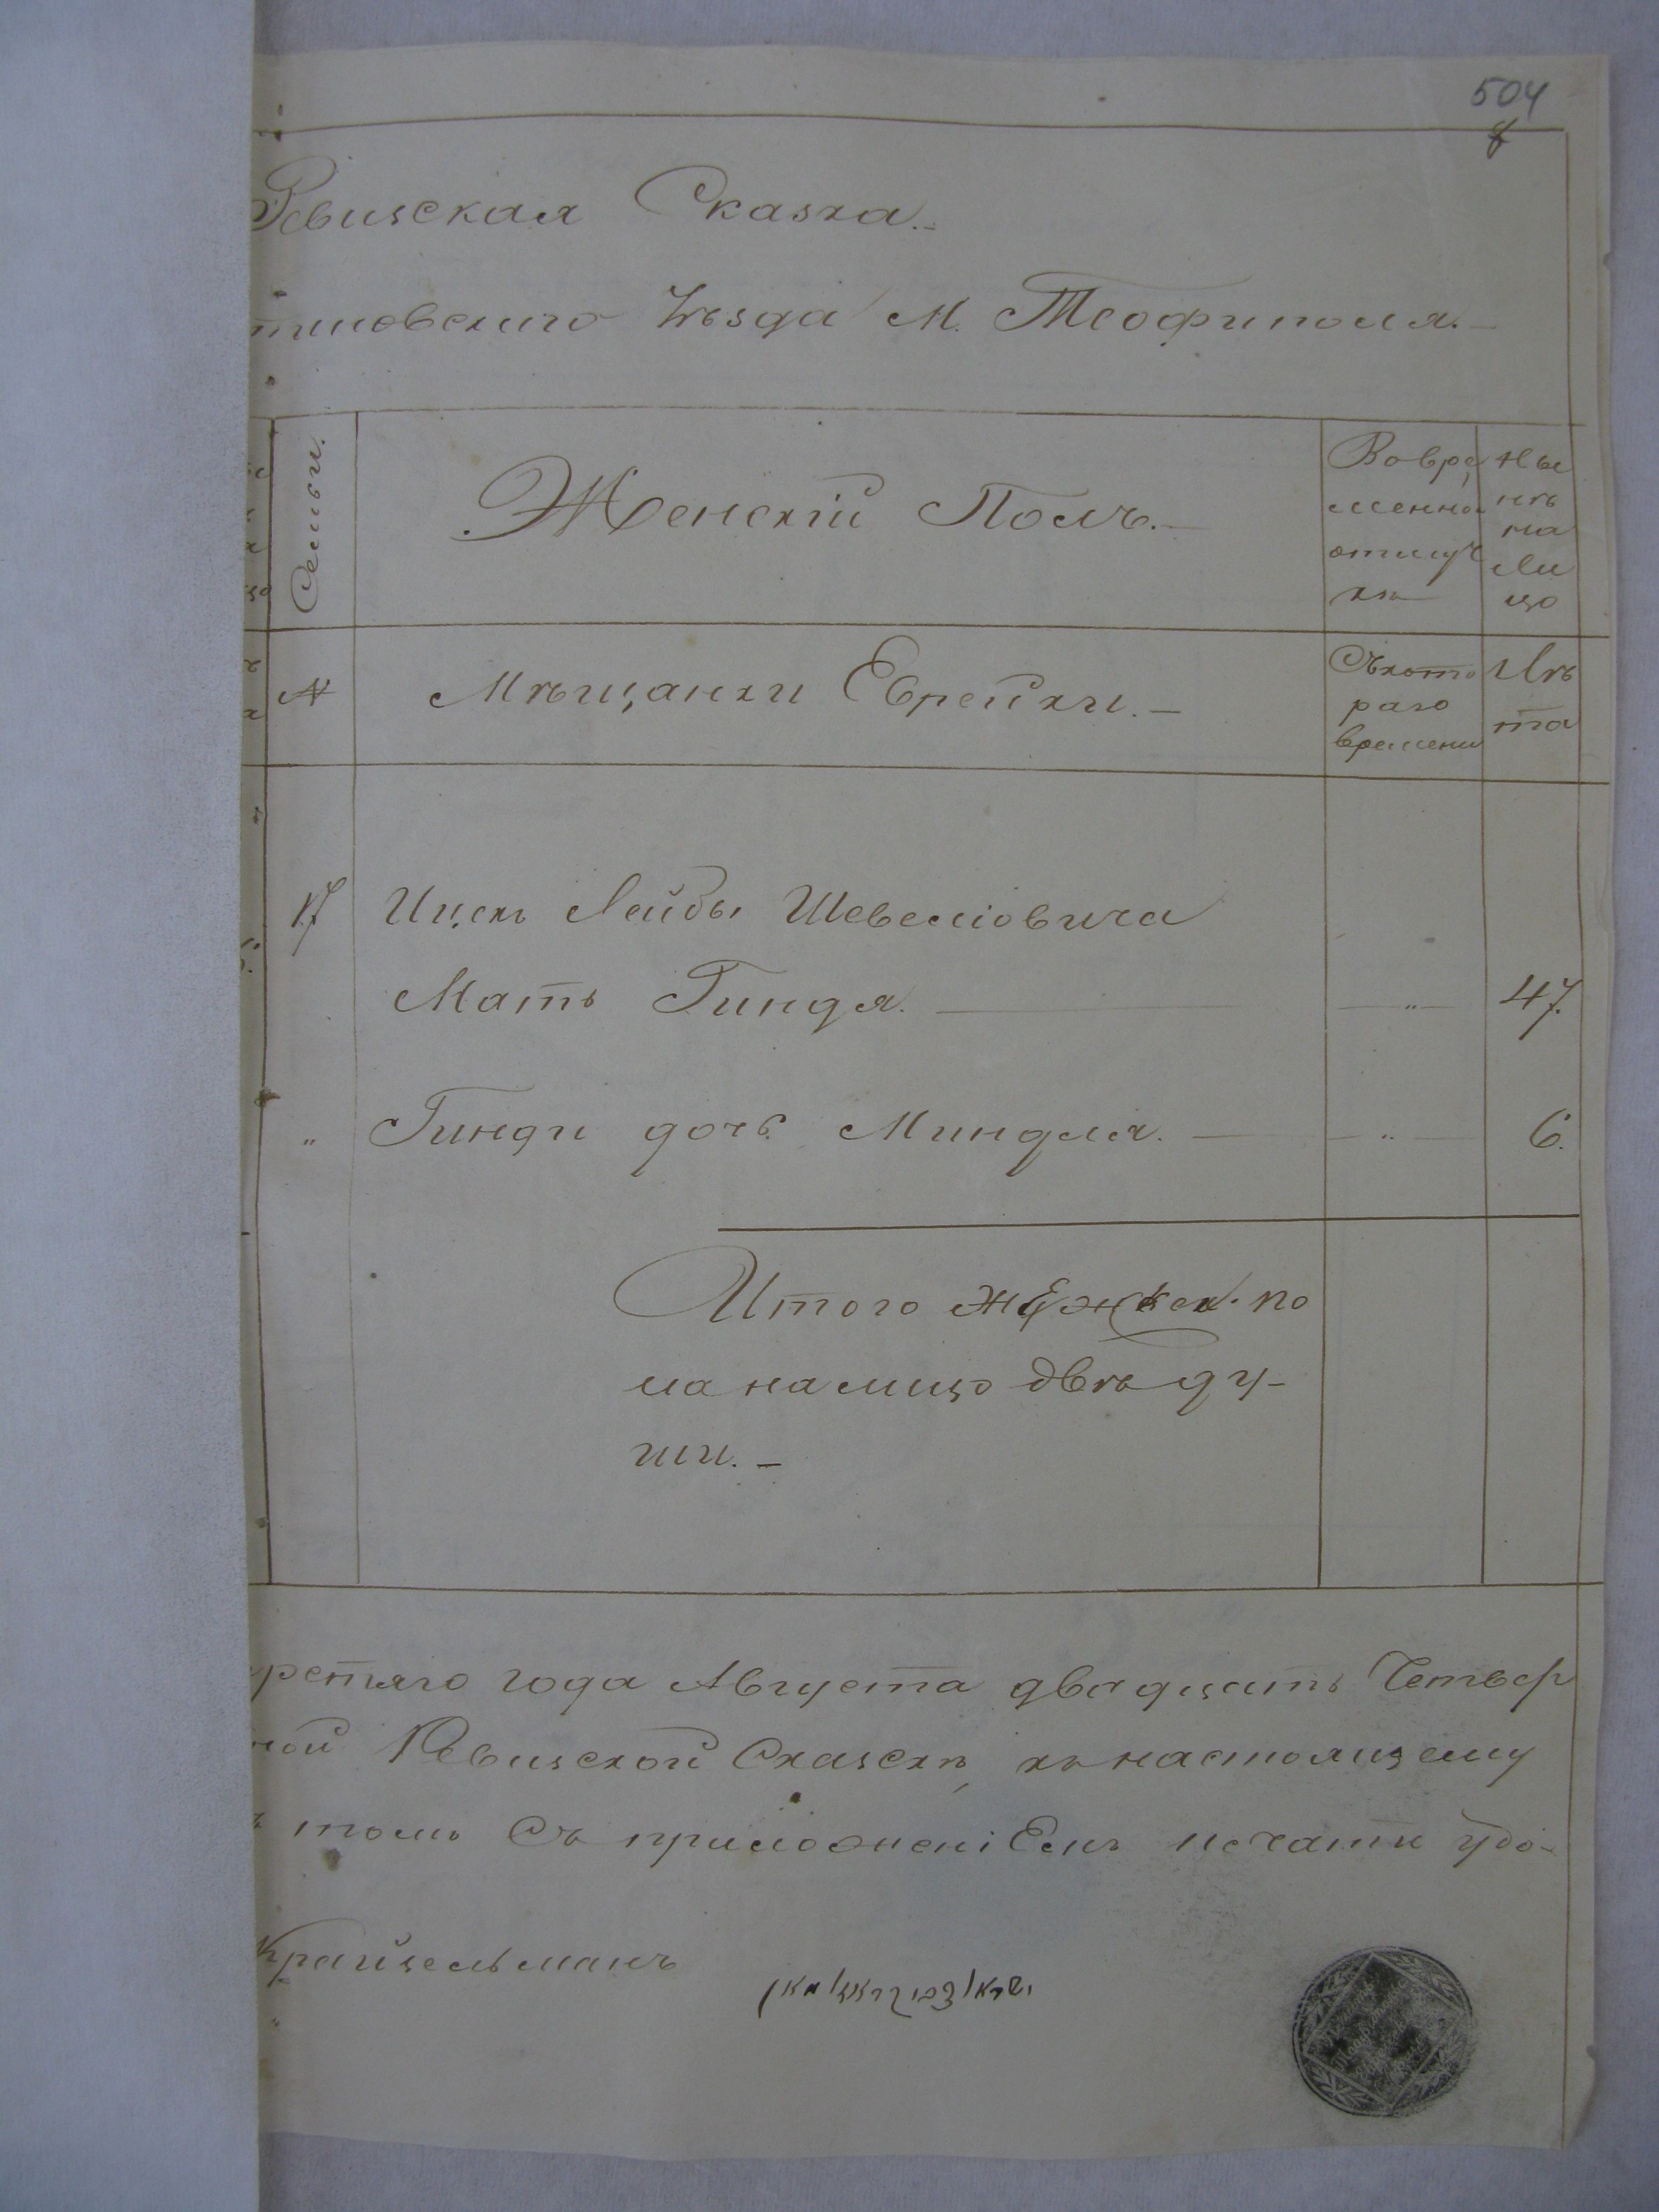 504
8
Ревизская Сказка.
тиновского Уѣзда М. Теофиполя.
Семьи.
Женскій Полъ.
Вовре
менной
отлуч
кѣ
Ны
нѣ
на
Ли
цо
№
Мѣщанки Еврейки.
Съкото
раго
времени
Лѣ
та
17
Ицек Лейбы Шевелiовича
Мать Гиндя. — „ — 47.
„ Гинди дочь Миндля. — „ — 6.
Итого женск. по
ла налицо двѣ ду-
ши.
ретяго года Августа двадцать Четвер
ной Ревизской Сказскѣ, къ настоящему
томъ Съ приложеніемъ печати удо-
Крайцельманъ